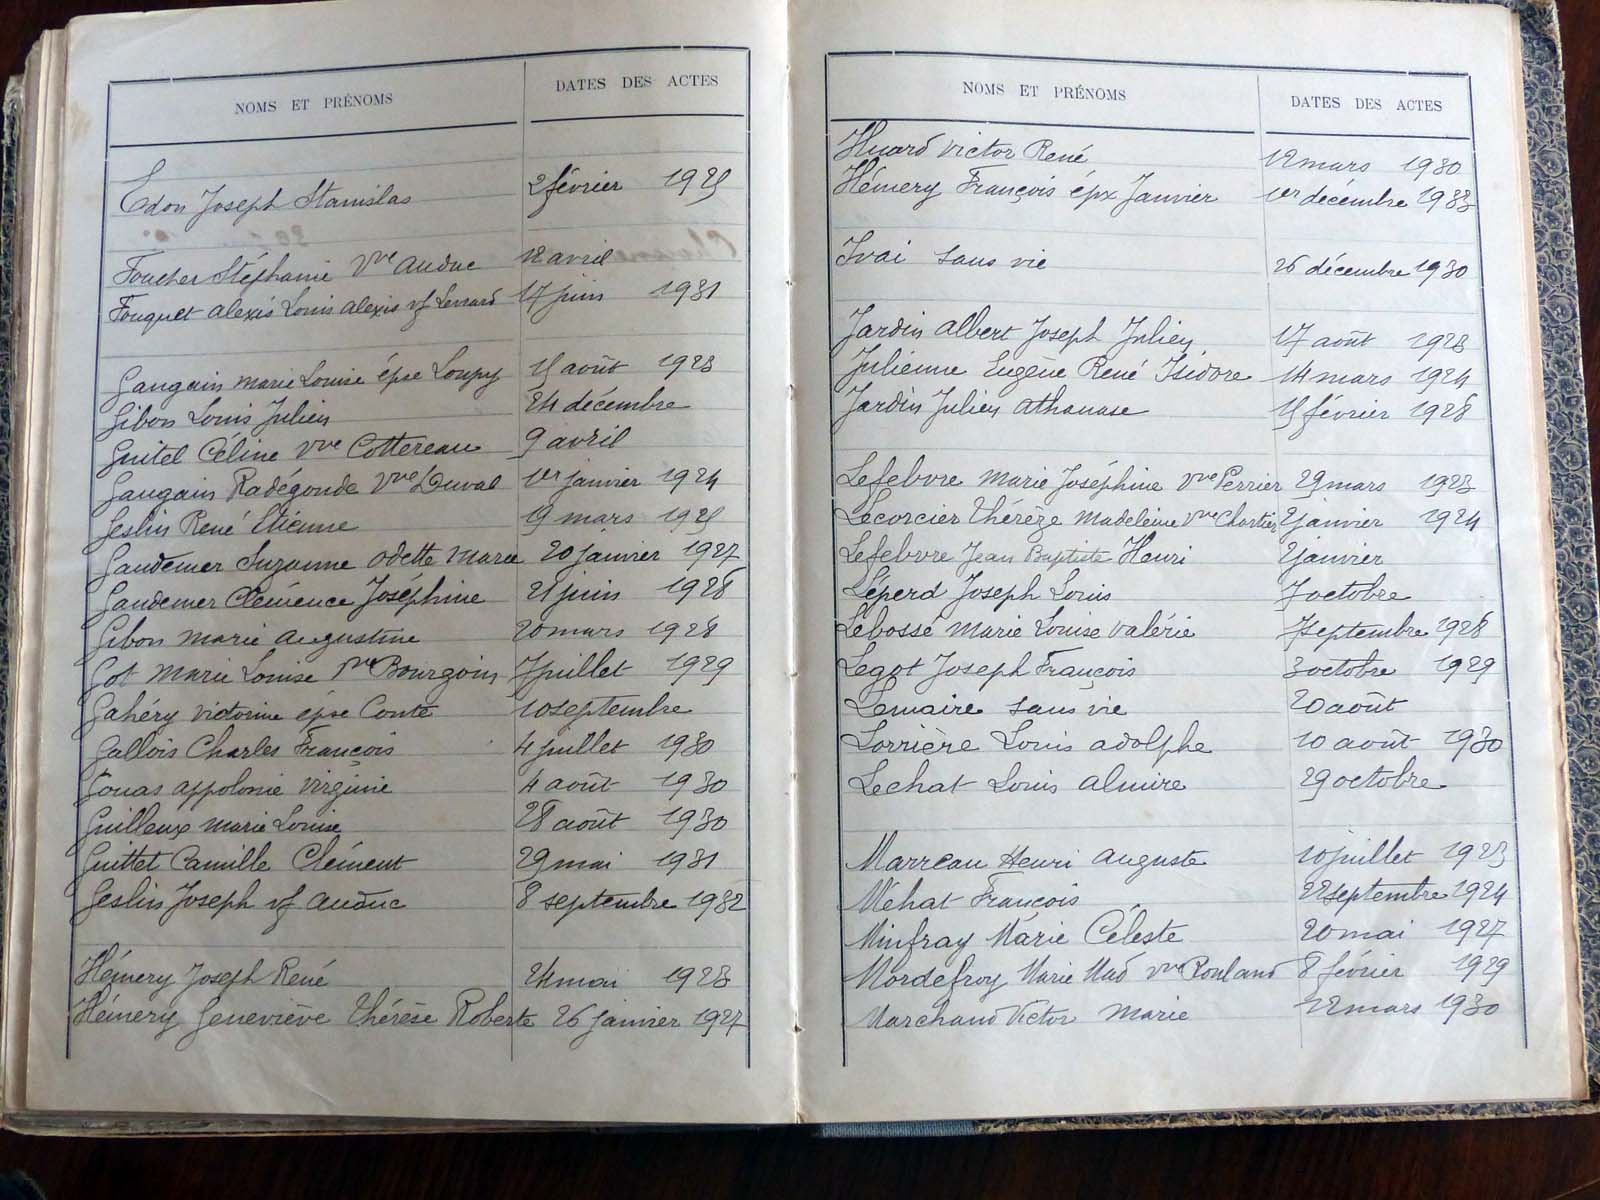 NOMS ET PRÉNOMS DATES DES ACTES
Edon Joseph Stanislas 2 février 1925
Foucher Stéphanie Vve Auduc 12 avril
Fouquet Alexis Louis Alexis vf Lenard 17 juin 1931
Gaugain Marie Louise épse Loupy 15 août 1923
Gibon Louis Julien 24 décembre
Guitel Céline Vve Cottereau 9 avril
Gaugain Radégonde Vve Duval 1er janvier 1924
Geslin René Etienne 19 mars 1925
Gaudemer Suzanne Odette Marie 20 janvier 1927
Gaudemer Clémence Joséphine 21 juin 1926
Gibon Marie Augustine 20 mars 1928
Got Marie Louise Vve Bourgoin 7 juillet 1929
Gahéry Victorine épse Conté 10 septembre
Gallois Charles François 4 juillet 1930
Gouas Appolonie Virginie 4 août 1930
Guilleux Marie Louise 28 août 1930
Guittet Camille Clément 29 mai 1931
Geslin Joseph vf Auduc 8 septembre 1932
Hémery Joseph René 24 mai 1923
Hémery Geneviève Thérèse Roberte 26 janvier 1927
NOMS ET PRÉNOMS DATES DES ACTES
Huard Victor René 12 mars 1930
Hémery François épx Janvier 1er décembre 1933
Ivai sans vie 26 décembre 1930
Jardin Albert Joseph Julien 17 août 1923
Julienne Eugène René Isidore 14 mars 1924
Jardin Julien Athanase 15 février 1926
Lefebvre Marie Joséphine Vve Perrier 29 mars 1923
Lecorcier Thérèze Madeleine Vve Chartier 2 janvier 1924
Lefebvre Jean Baptiste Henri 2 janvier
Léperd Joseph Louis 7 octobre
Lebossé Marie Louise Valérie 7 septembre 1926
Legot Joseph François 3 octobre 1929
Lemaire sans vie 20 août
Lorrière Louis Adolphe 10 août 1930
Lechat Louis Almire 29 octobre
Marreau Henri Auguste 10 juillet 1923
Méhat François 22 septembre 1924
Minfray Marie Céleste 20 mai 1927
Mordefroy Marie Mad Vve Rouland 8 février 1929
Marchand Victor Marie 12 mars 1930